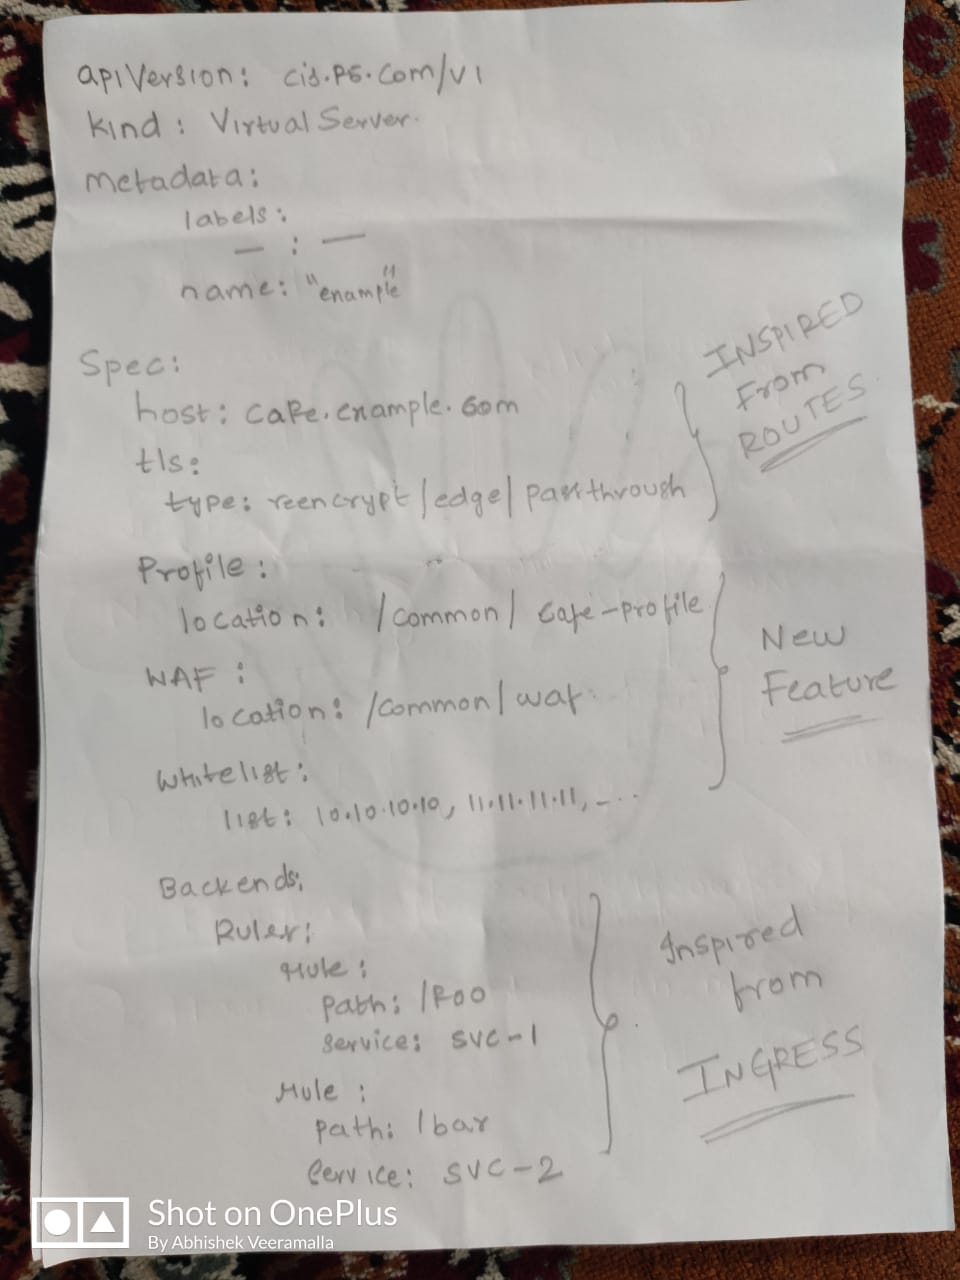 apiVersion: cis.F5.com/v1
kind: Virtual Server.
metadata:
labels:
— : —
name: "enample"
Spec:
host: caFe.example.com
tls:
type: reencrypt/edge/passthrough
INSPIRED
From
ROUTES
Profile:
location: /common/ cafe-profile
WAF:
location: /common/waf
Whitelist:
list: 10.10.10.10, 11.11.11.11, -...
New
Feature
Backends:
Rules:
Rule:
Path: /Foo
Service: svc-1
Rule:
path: /bar
Service: svc-2
Inspired
from
INGRESS
Shot on OnePlus
By Abhishek Veeramalla